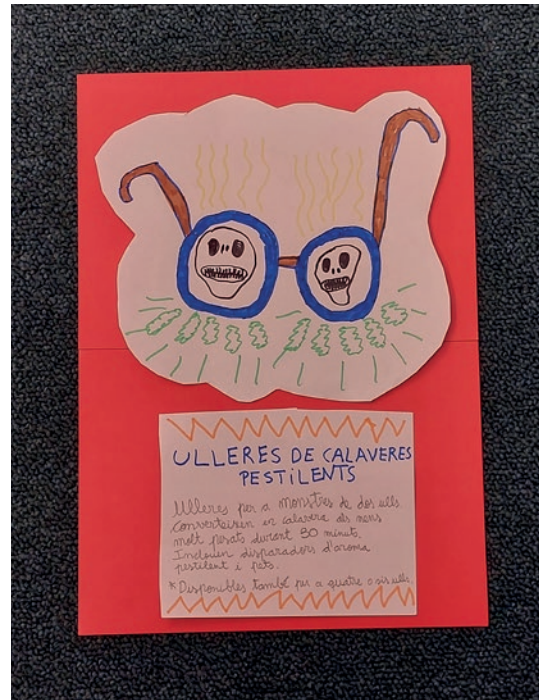 ULLERES DE CALAVERES
PESTILENTS
Ulleres per a monstres de dos ulls.
Converteixen en calavera als nens
molt pesats durant 30 minuts.
Inclouen disparadors d'aroma
pestilent i pets.
* Disponibles també per a quatre o sis ulls.